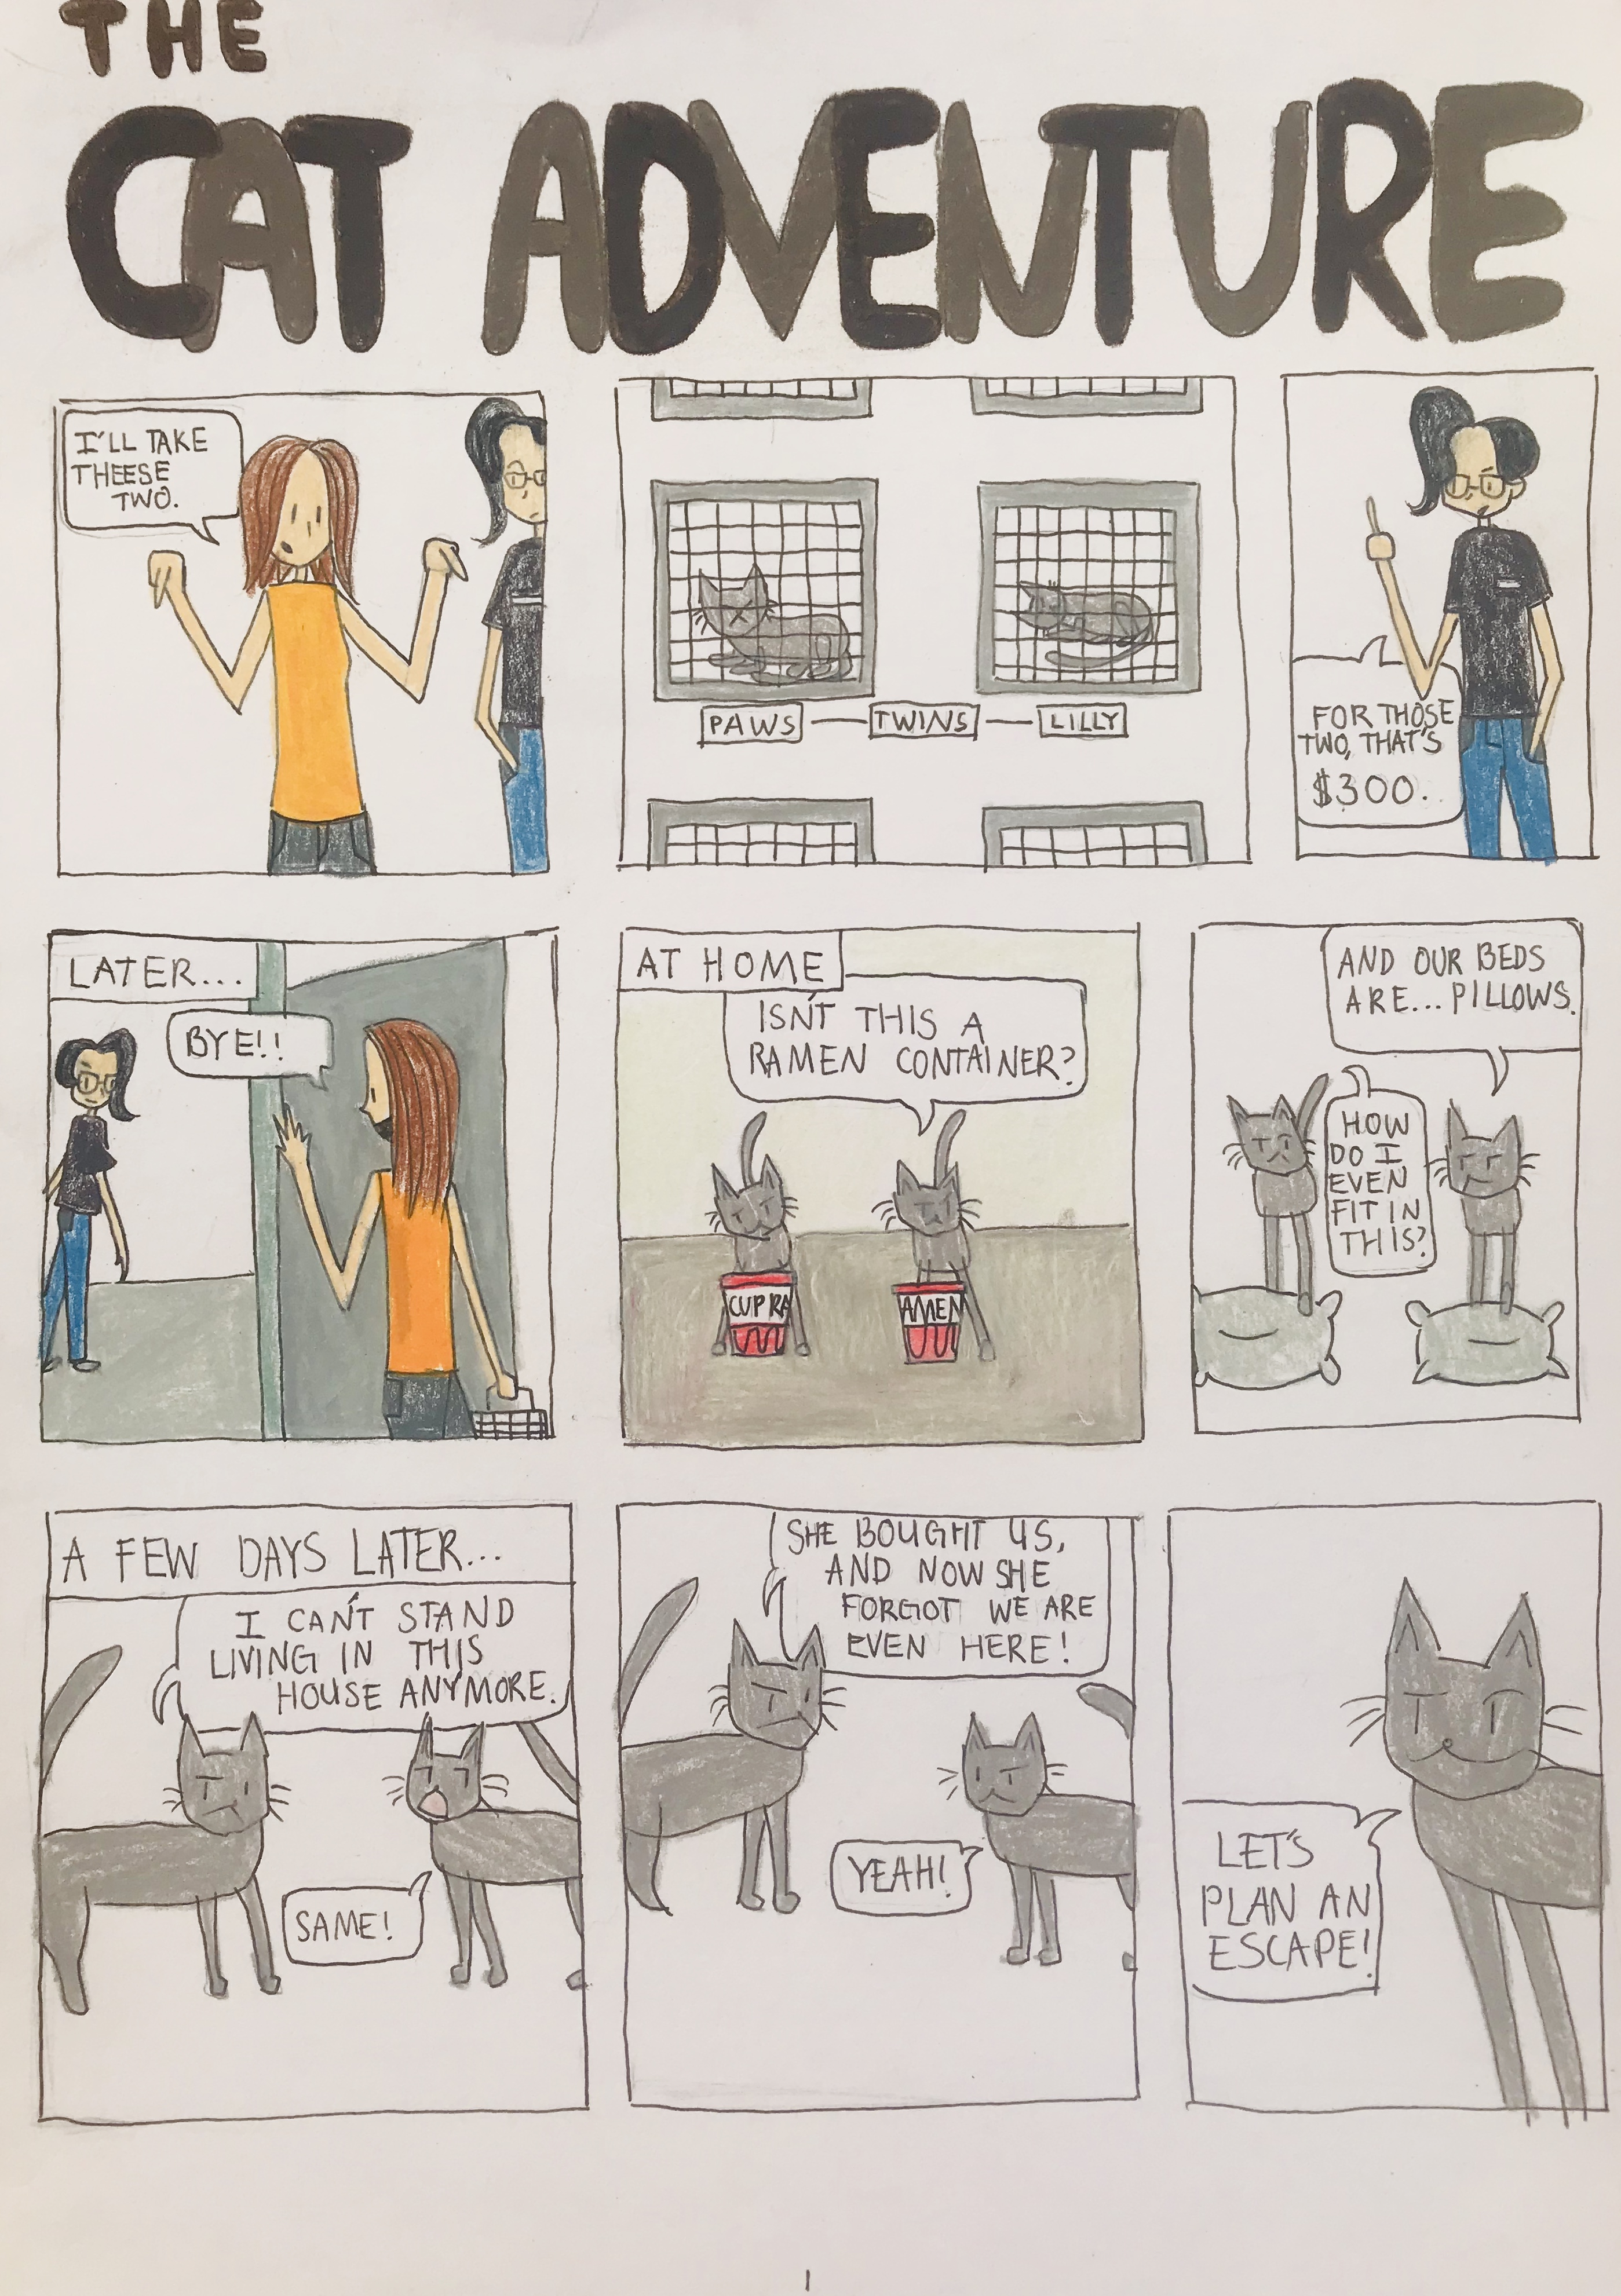 THE
CAT ADVENTURE
I'LL TAKE
THEESE
TWO.
PAWS — TWINS — LILLY
FOR THOSE
TWO, THAT'S
$300.
LATER...
BYE!!
AT HOME
ISN'T THIS A
RAMEN CONTAINER?
CUP RA
AMEN
AND OUR BEDS
ARE... PILLOWS.
HOW
DO I
EVEN
FIT IN
THIS?
A FEW DAYS LATER...
I CAN'T STAND
LIVING IN THIS
HOUSE ANYMORE.
SAME!
SHE BOUGHT US,
AND NOW SHE
FORGOT WE ARE
EVEN HERE!
YEAH!
LET'S
PLAN AN
ESCAPE!
1